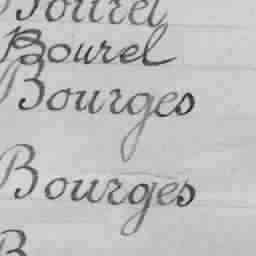 Bourel
Bourel
Bourges
Bourges
B